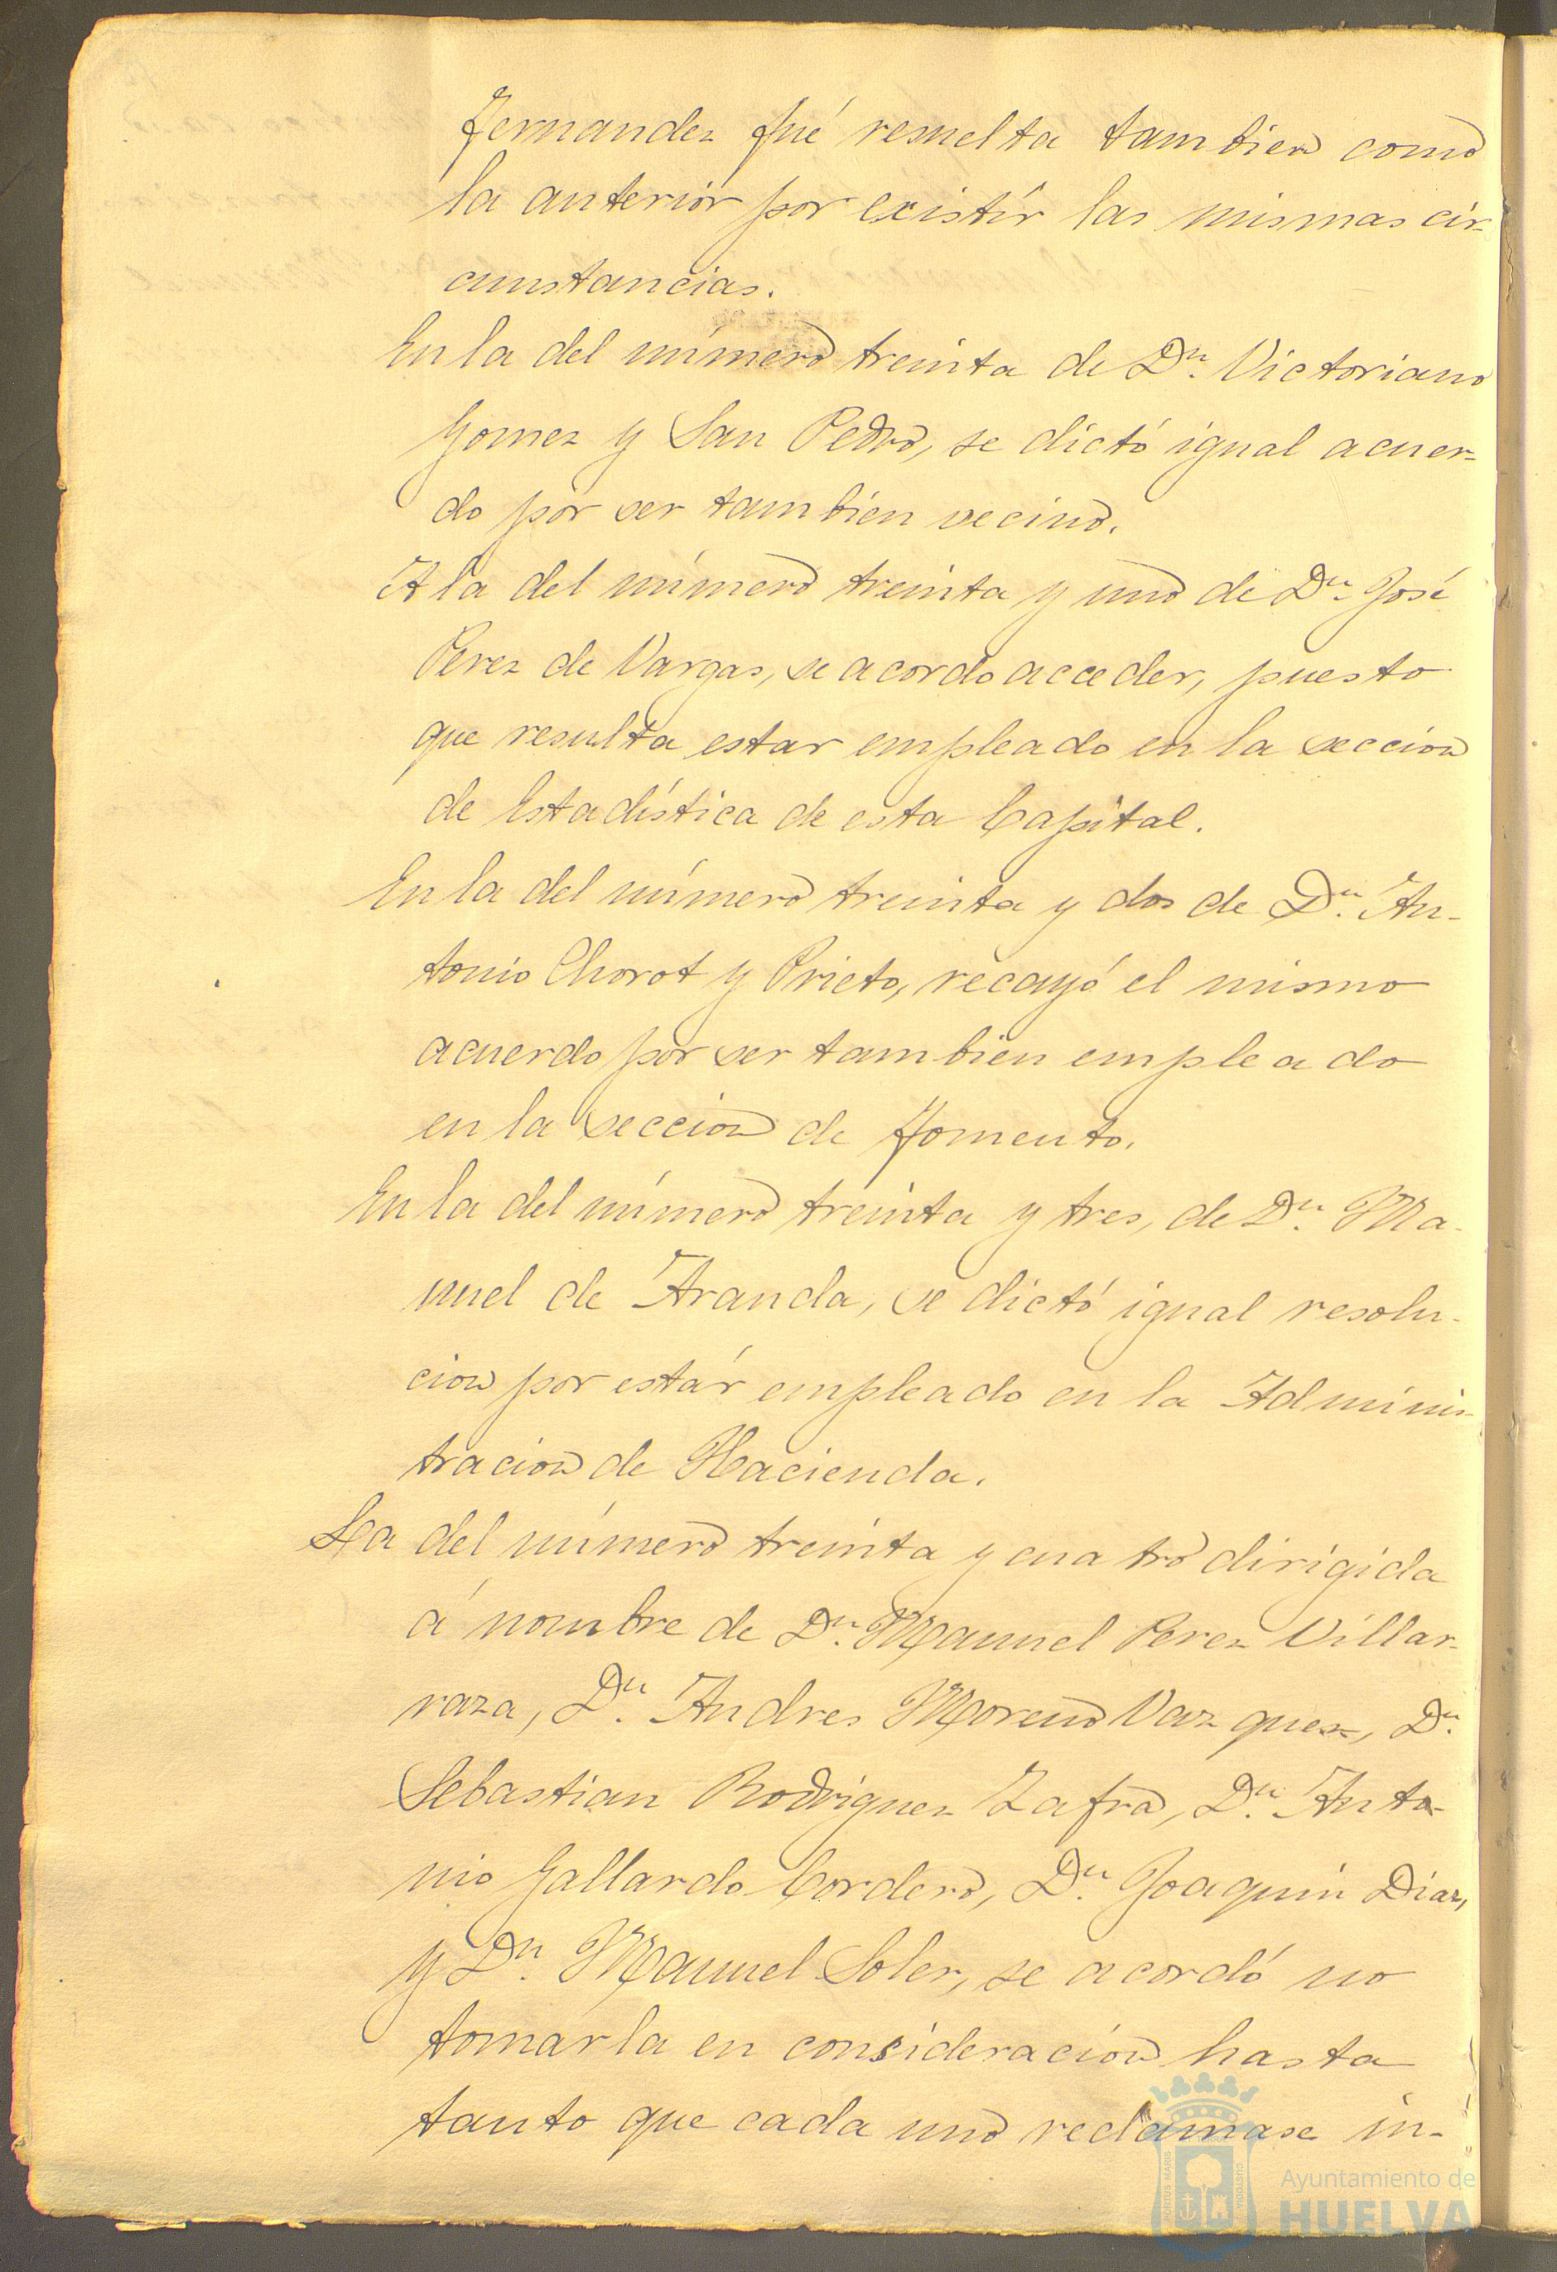 Fernandez fué resuelta tambien como
la anterior por existír las mismas cir-
cunstancias.
En la del número treinta de Dn. Victoriano
Gomez y San Pedro, se dictó igual acuer-
do por ser tambien vecino.
A la del número treinta y uno de Dn. José
Perez de Vargas, se acordo acceder, puesto
que resulta estar empleado en la seccion
de Estadística de esta Capital.
En la del número treinta y dos de Dn. An-
tonio Chorot y Prieto, recayó el mismo
acuerdo por ser tambien empleado
en la seccion de Fomento.
En la del número treinta y tres, de Dn. Ma-
nuel de Aranda, se dictó igual resolu-
cion por estár empleado en la Adminis-
tracion de Hacienda.
La del número treinta y cuatro dirigida
á nombre de Dn. Manuel Perez Villar-
raza, Dn. Andres Moreno Vazquez, Dn.
Sebastian Rodriguez Zafra, Dn. Anto-
nio Gallardo Cordero, Dn. Joaquin Diaz,
y Dn. Manuel Soler, se acordó no
tomarla en consideracion hasta
tanto que cada uno reclamase in-
Ayuntamiento de
HUELVA